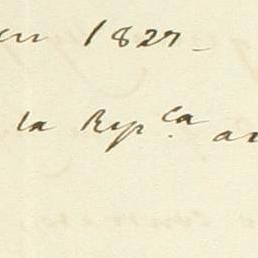 en 1827
la Rep.ca